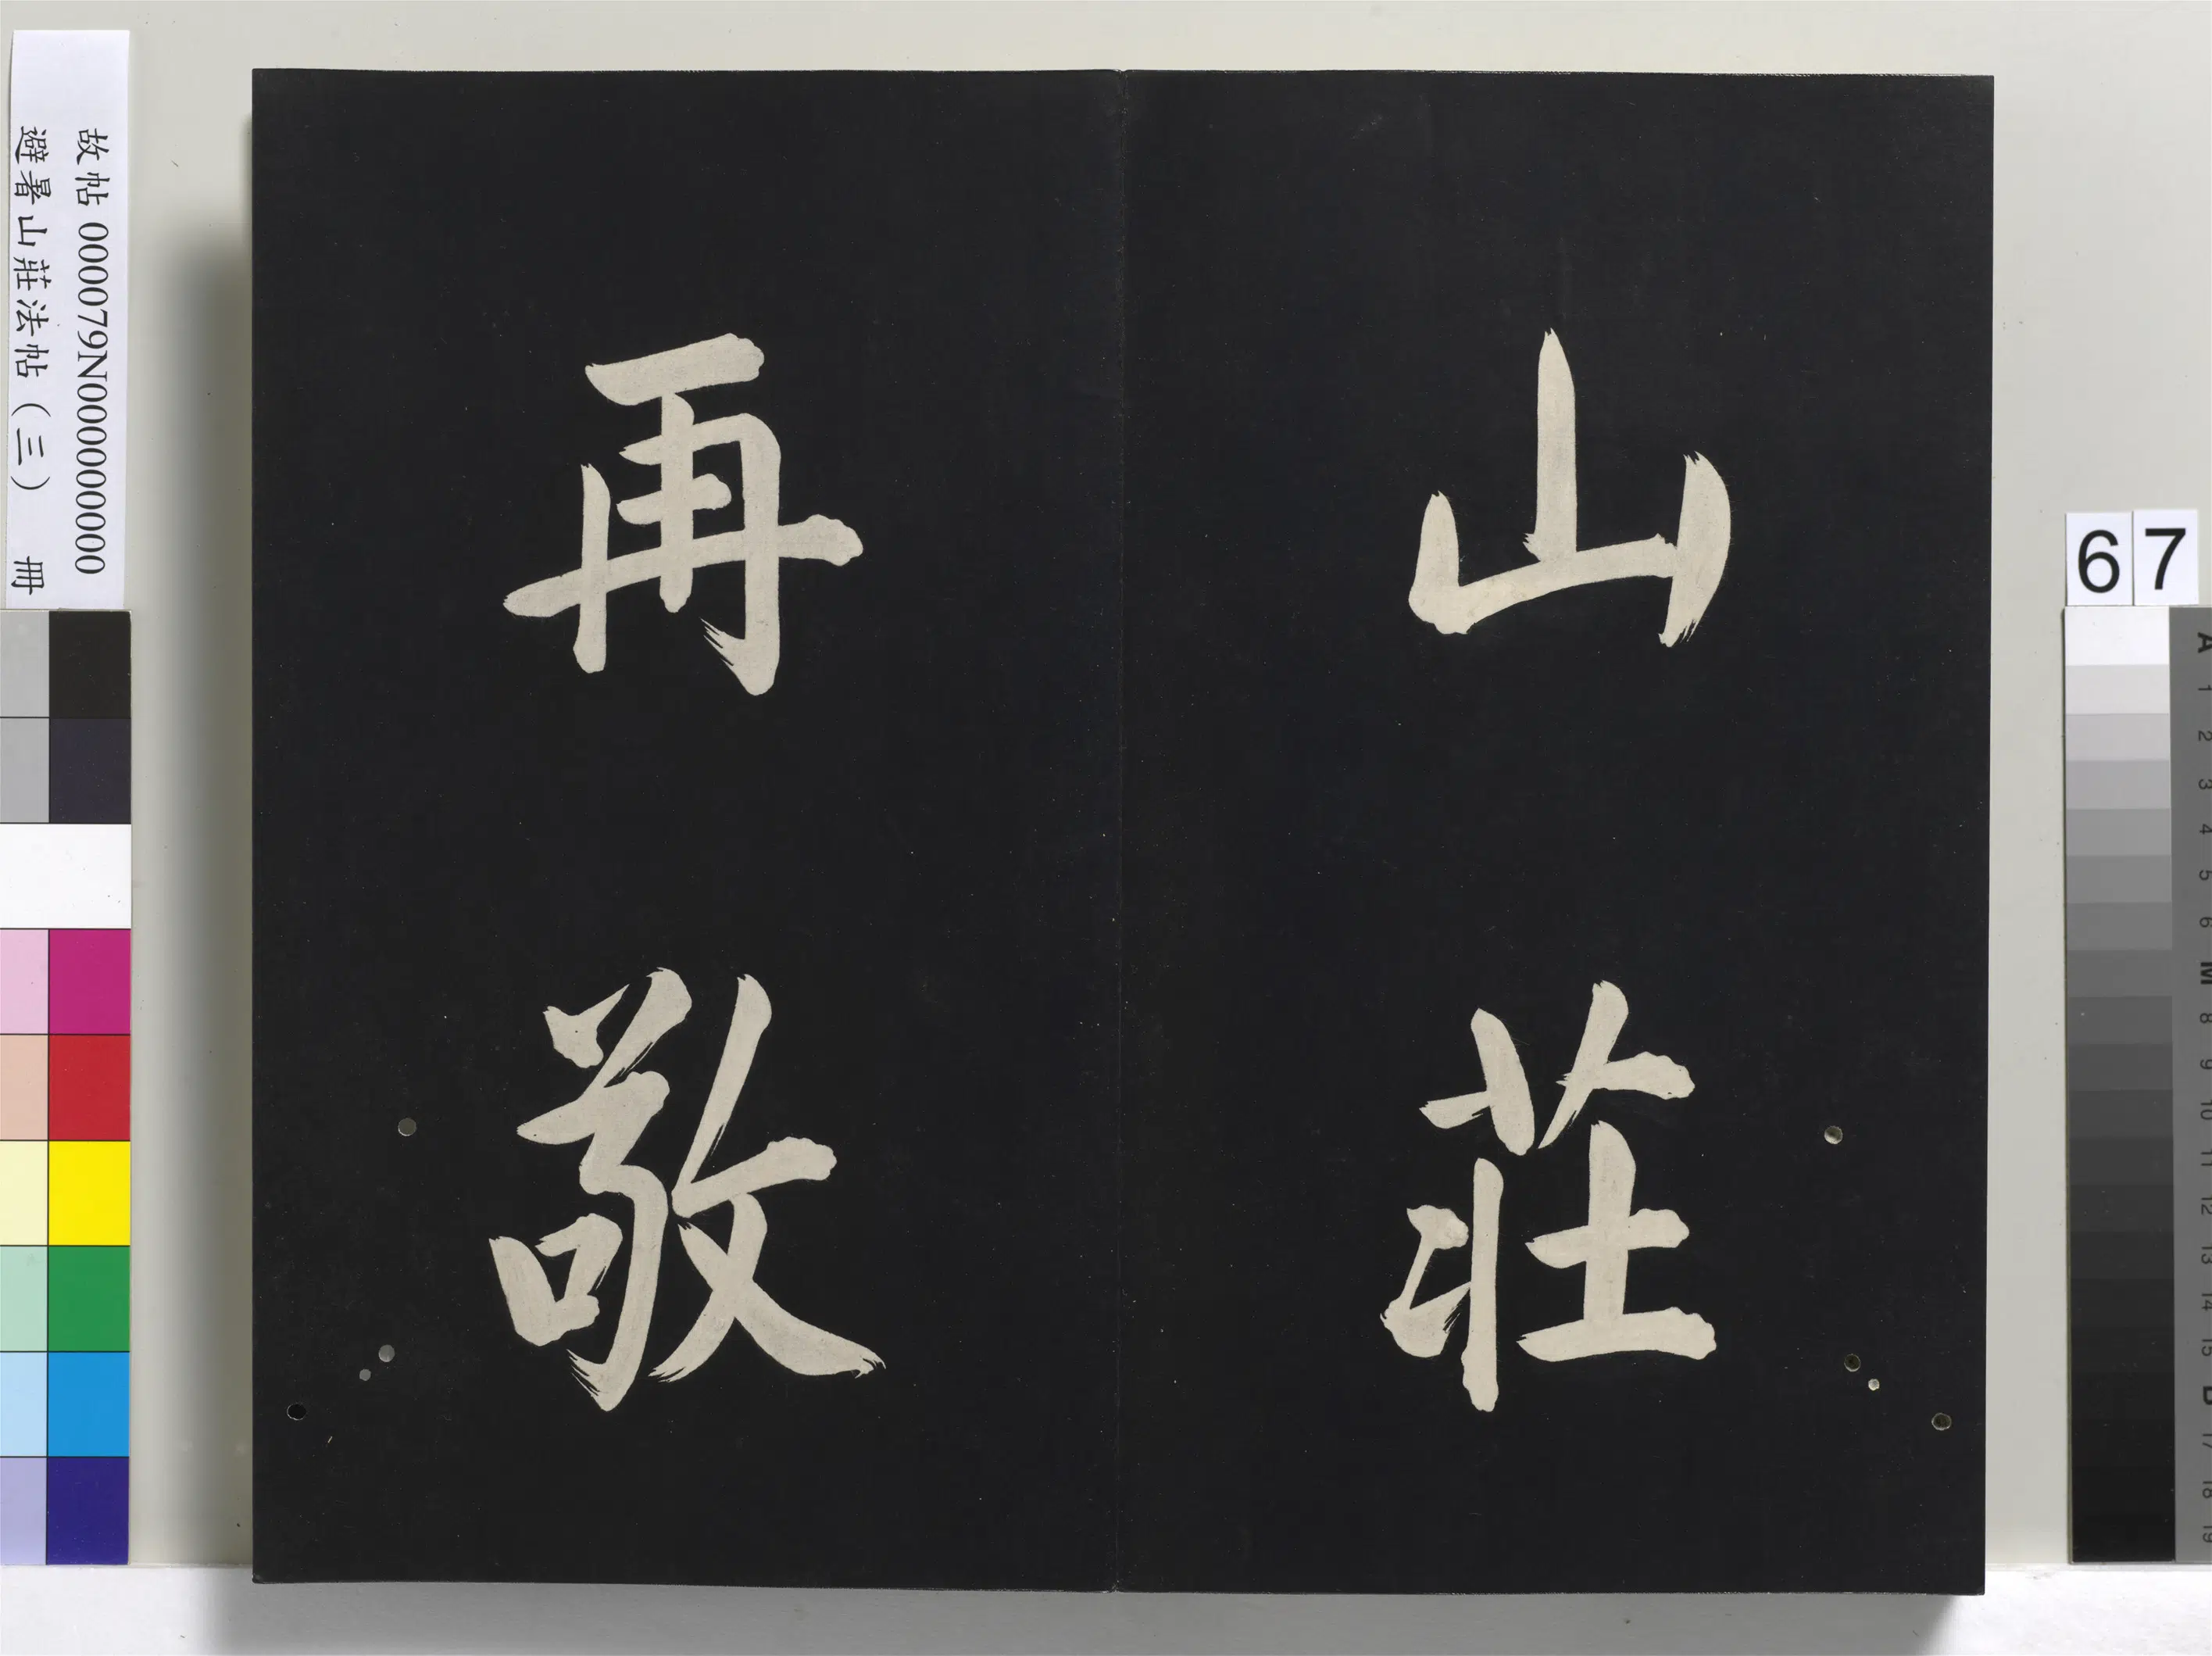 山莊
再敬
故帖 000079N000000000
避暑山莊法帖（三） 冊
67
A
1
2
3
4
5
6
M
8
9
10
11
12
13
14
15
B
17
18
19